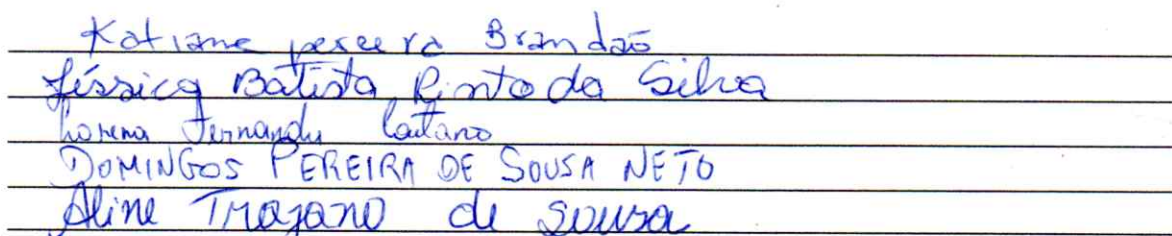 Katiane pereira Brandão
Jéssica Batista Pinto da Silva
Lorena Fernandes Caetano
DOMINGOS PEREIRA DE SOUSA NETO
Aline Trajano de Sousa